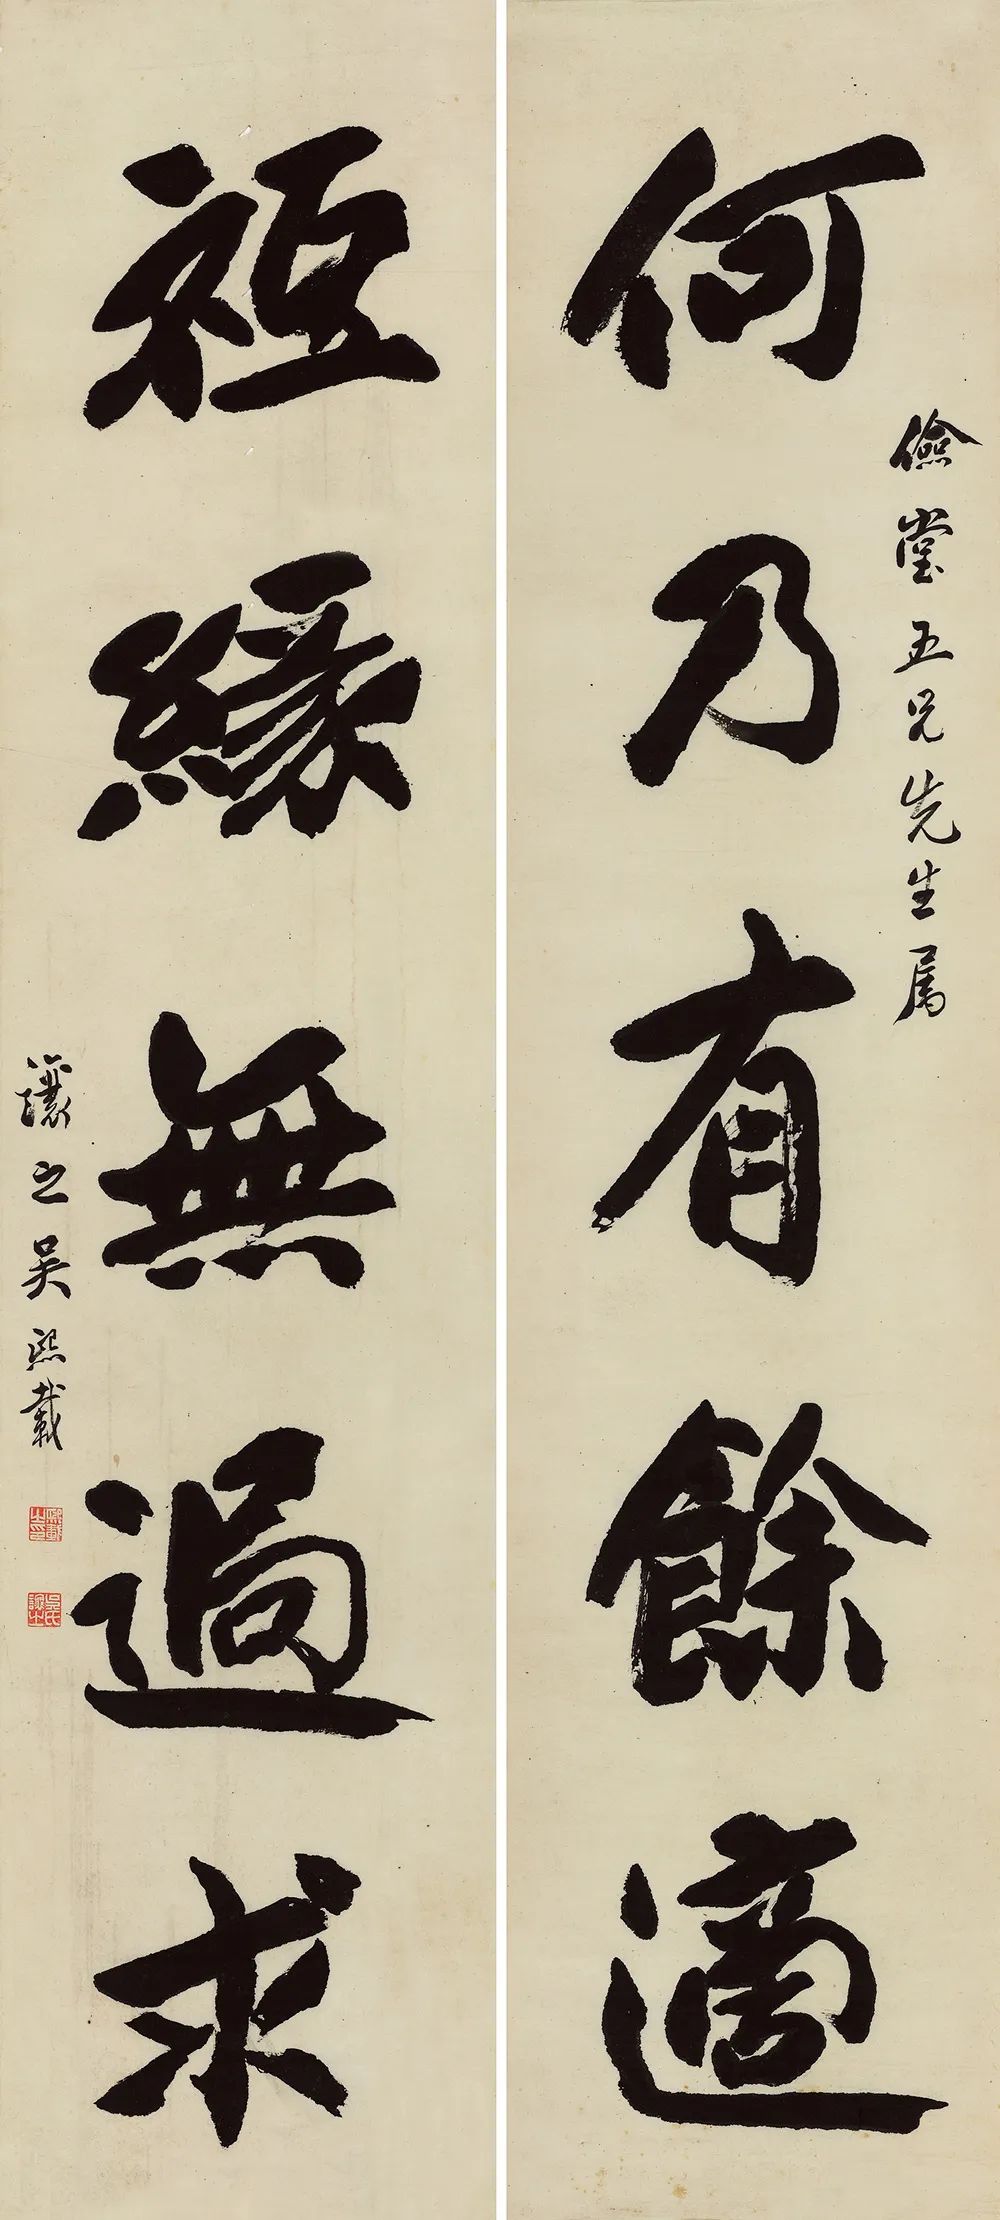 儉堂五兄先生属
何乃有餘適
祗緣無過求
讓之吳熙載
熙載之印
吳氏讓之